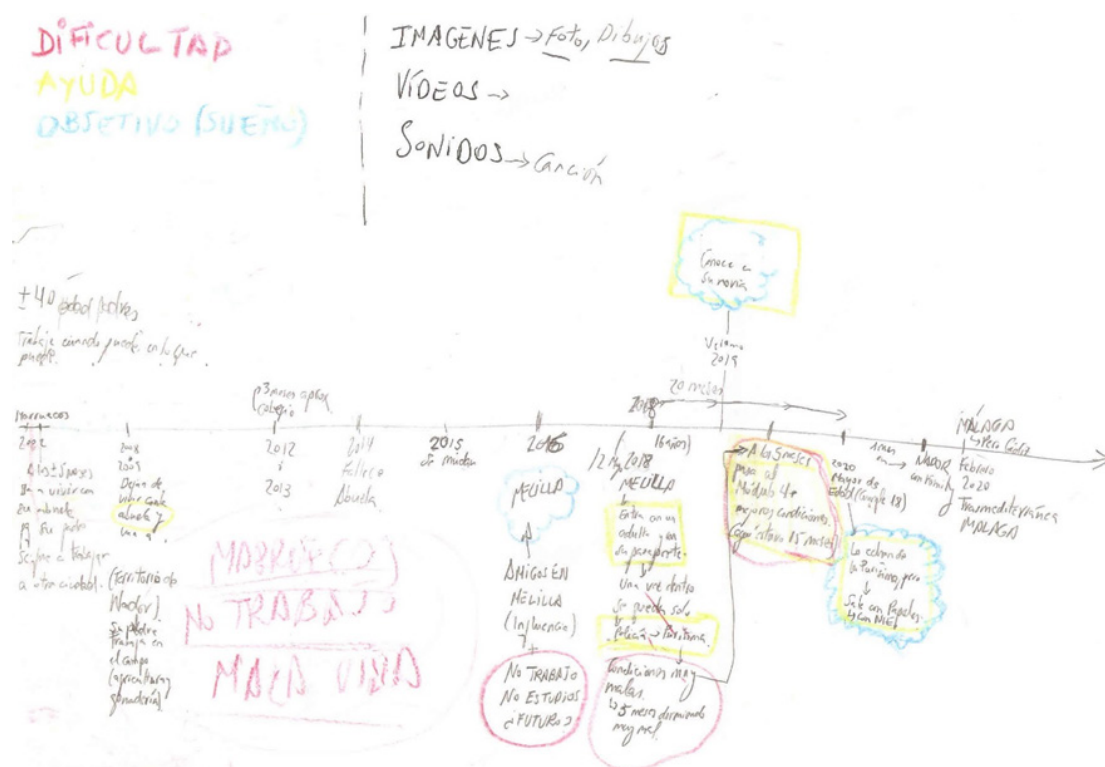 DIFICULTAD
AYUDA
OBSETIVO (SUEÑO)
IMAGENES → Foto, Dibujos
VÍDEOS →
SONIDOS → Canción
Conoce a
su novia
Verano
2019
± 40 edad padres
Trabaja cuando puede, en lo que
puede.
20 meses
3 meses aprox
colegio
Marruecos
2002
A los ± 5 meses
van a vivir con
su abuela
y su padre
se fue a trabajar
a otra ciudad.
2008
2009
Dejan de
vivir con la
abuela y
van a
(Territorio de
Nador).
Su padre
trabaja en
el campo
(agricultura y
ganadería)
2012
2013
2014
Fallece
Abuela
2015
Se mudan
MARRUECOS
NO TRABAJO
MALA VIDA
2016
MELILLA
AMIGOS EN
MELILLA
(Influencia)
+
NO TRABAJO
NO ESTUDIOS
¿FUTURO?
2018
(16 años)
12 2018
MELILLA
Entra con un
adulto y con
su pasaporte.
Una vez dentro
se queda solo
Policía → Purísima.
Condiciones muy
malas.
↳ 5 meses durmiendo
muy mal.
→ A los 5 meses
pasa al
Módulo 4 →
mejores condiciones
15 meses
2020
Mayor de
Edad (Cumple 18)
Lo echan de
la Purísima, pero
Sale con Papeles.
↳ con NIE
1 mes
en →
NADOR
con Family
MÁLAGA
↳ Pero
Febrero
2020
Trasmediterránea
MÁLAGA